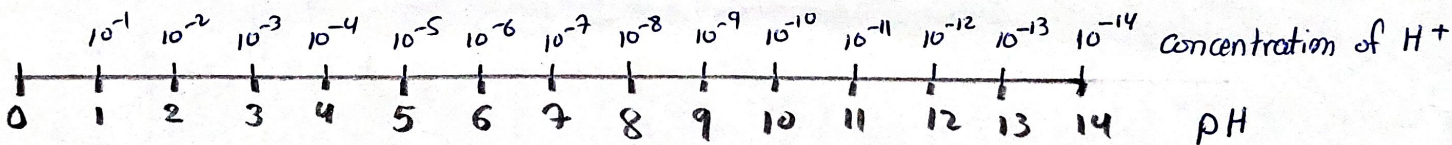 10⁻¹ 10⁻² 10⁻³ 10⁻⁴ 10⁻⁵ 10⁻⁶ 10⁻⁷ 10⁻⁸ 10⁻⁹ 10⁻¹⁰ 10⁻¹¹ 10⁻¹² 10⁻¹³ 10⁻¹⁴ concentration of H⁺
0 1 2 3 4 5 6 7 8 9 10 11 12 13 14 pH